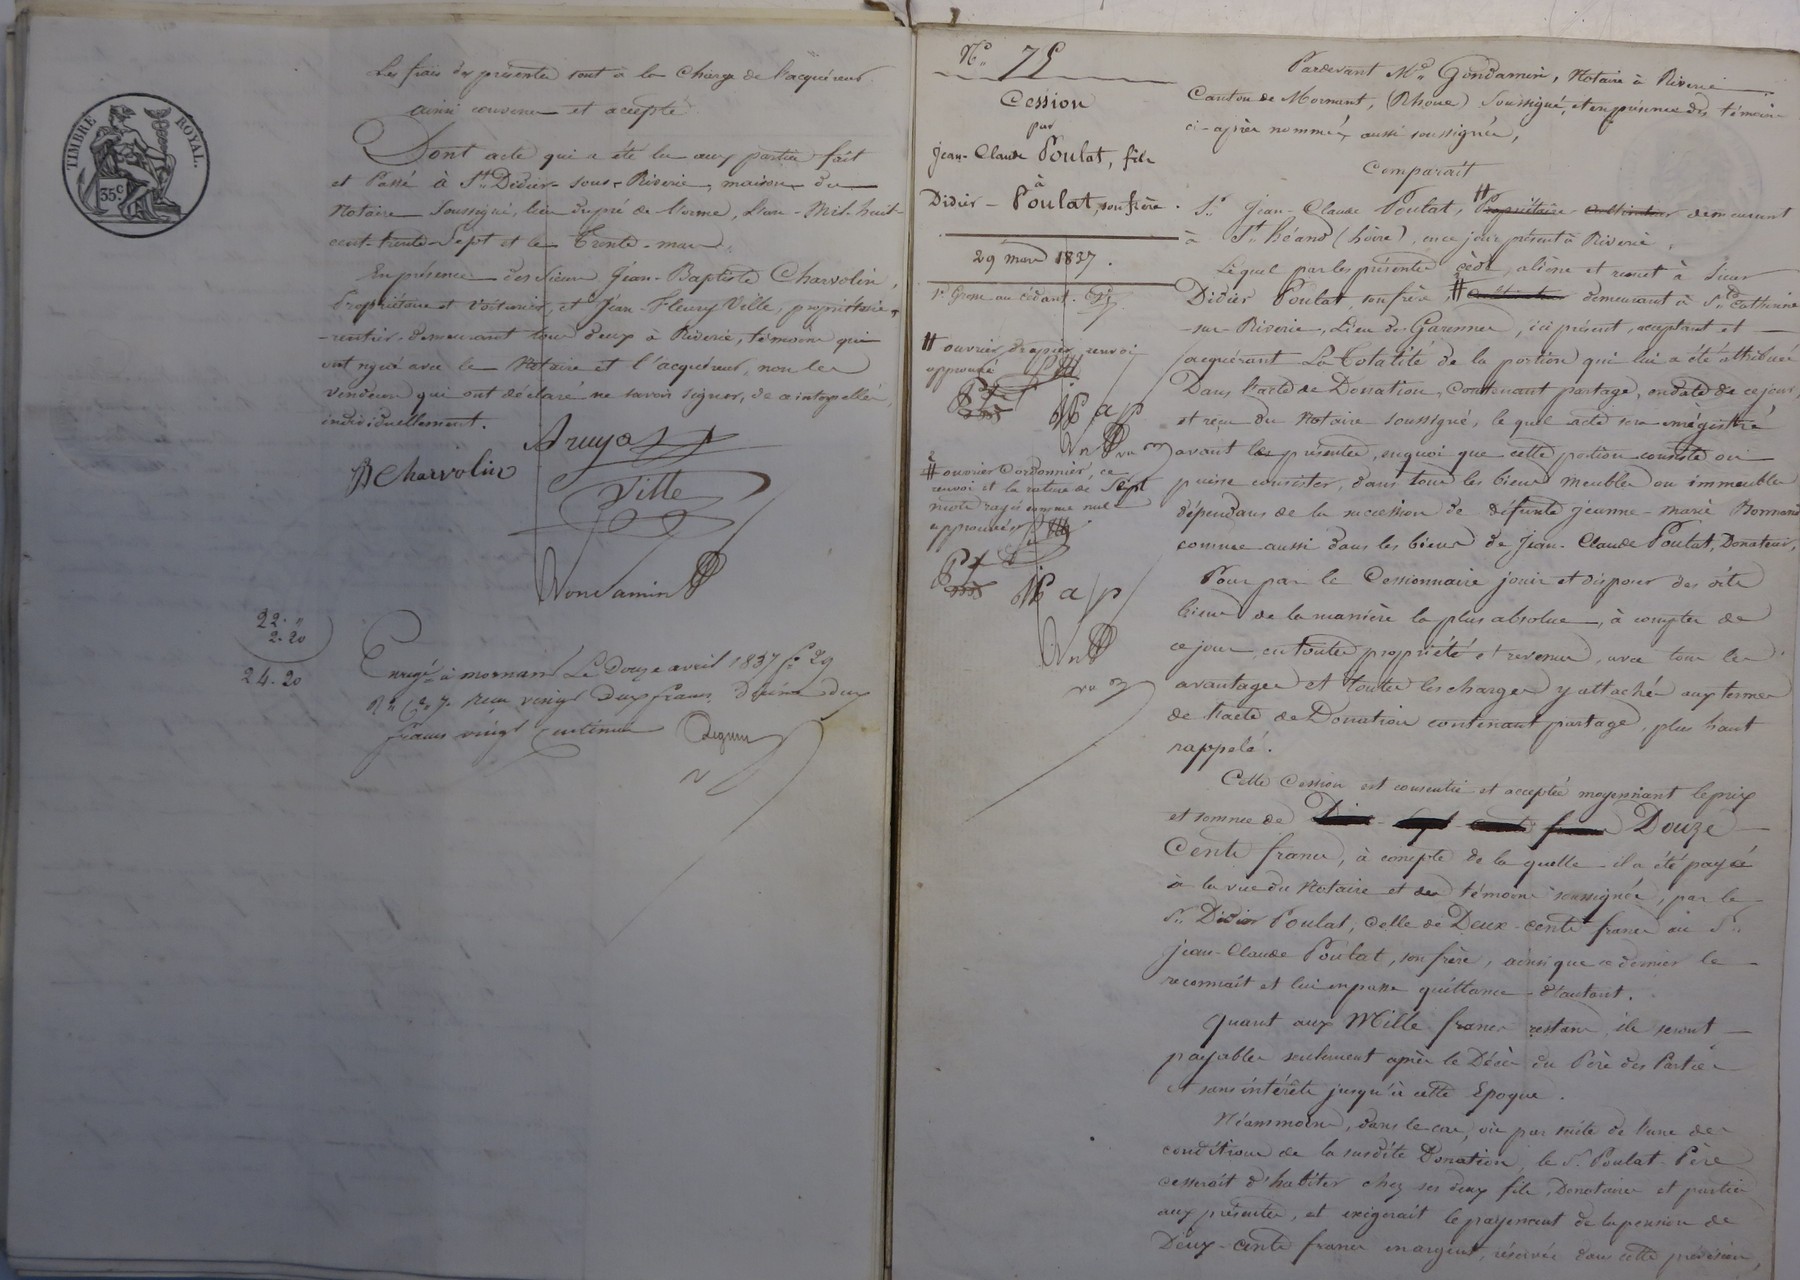 TIMBRE ROYAL.
35c
Les frais des présentes sont à la charge de l'acquéreur.
ainsi convenu et accepté
Dont acte qui a été lu aux parties fait
et Passé à St Didier-sous-Riverie, maison du
Notaire soussigné, lieu du pré de l'orme, L'an Mil-huit-
cent-trente-Sept et le Trente-mars.
En présence des sieurs Jean-Baptiste Charvolin,
Propriétaire et Voiturier, et Jean-Fleury Ville, propriétaire
-rentier, demeurant tous deux à Riverie, témoins qui
ont signé avec le Notaire et l'acquéreur, non les
vendeurs qui ont déclaré ne savoir signer, de ce interpellés
individuellement.
JB Charvolin
Ville
Gondamin
22. "
2. 20
24. 20
Enregé à mornant Le Douze avril 1837 fo 29
Ro Ces 7. reçu vingt deux francs, décime deux
francs vingt centimes
No 75
Cession
par
Jean-Claude Poulat, fils
à
Didier-Poulat, son frère.
29 mars 1837.
1e Grosse au cédant.
# ouvrier drapier, renvoi
approuvé
JP a p
2
# ouvrier Cordonnier, ce
renvoi et la rature de Sept
mots rayés comme nuls
approuvés
JP a p
Pardevant Me Gondamin, Notaire à Riverie
Canton de Mornant, (Rhône) Soussigné, et en présence des témoins
ci-après nommés, aussi soussignés,
Comparaît
Sr Jean-Claude Poulat, # Propriétaire Cultivateur demeurant
à St Héand (Loire), en ce jour présent à Riverie,
Lequel par les présentes cède, aliène et remet à Sieur
Didier Poulat son frère, # demeurant à Ste Catherine
-sur-Riverie, Lieu des Garennes, ici présent, acceptant et
acquérant La Totalité de la portion qui lui a été attribuée
Dans l'acte de Donation, Contenant partage, en date de ce jour,
et reçu du Notaire soussigné, lequel acte sera enregistré
avant les présentes, en quoi que cette portion consiste ou
puisse consister, dans tous les biens meubles ou immeubles
dépendans de la succession de défunte Jeanne-Marie
comme aussi dans les biens de Jean-Claude Poulat, Donateur,
Pour par le Cessionnaire jouir et disposer des dits
biens de la manière la plus absolue, à compter de
ce jour, en toutes propriétés et revenus, avec tous les
avantages et toutes les charges y attachés aux termes
de l'acte de Donation contenant partage, plus haut
rappelé.
Cette Cession est consentie et acceptée moyennant le prix
et somme de Douze
Cents francs, à compte de la quelle il a été payé
à la vue du Notaire et des témoins soussignés, par le
Sr Didier Poulat, Celle de Deux-cents francs au Sr
Jean-Claude Poulat, son frère, ainsi que ce dernier le
reconnaît et lui en passe quittance d'autant.
Quant aux Mille francs restans, ils seront
payables seulement après le Décès du Père des Parties
et sans intérêts jusqu'à cette Epoque.
Néammoins, dans le cas, où par suite de l'une des
conditions de la susdite Donation, le Sr Poulat Père
cesserait d'habiter chez ses deux fils, Donataires et parties
aux présentes, et exigerait le payement de la pension de
Deux-cents francs en argent, réservée dans cette prévision,